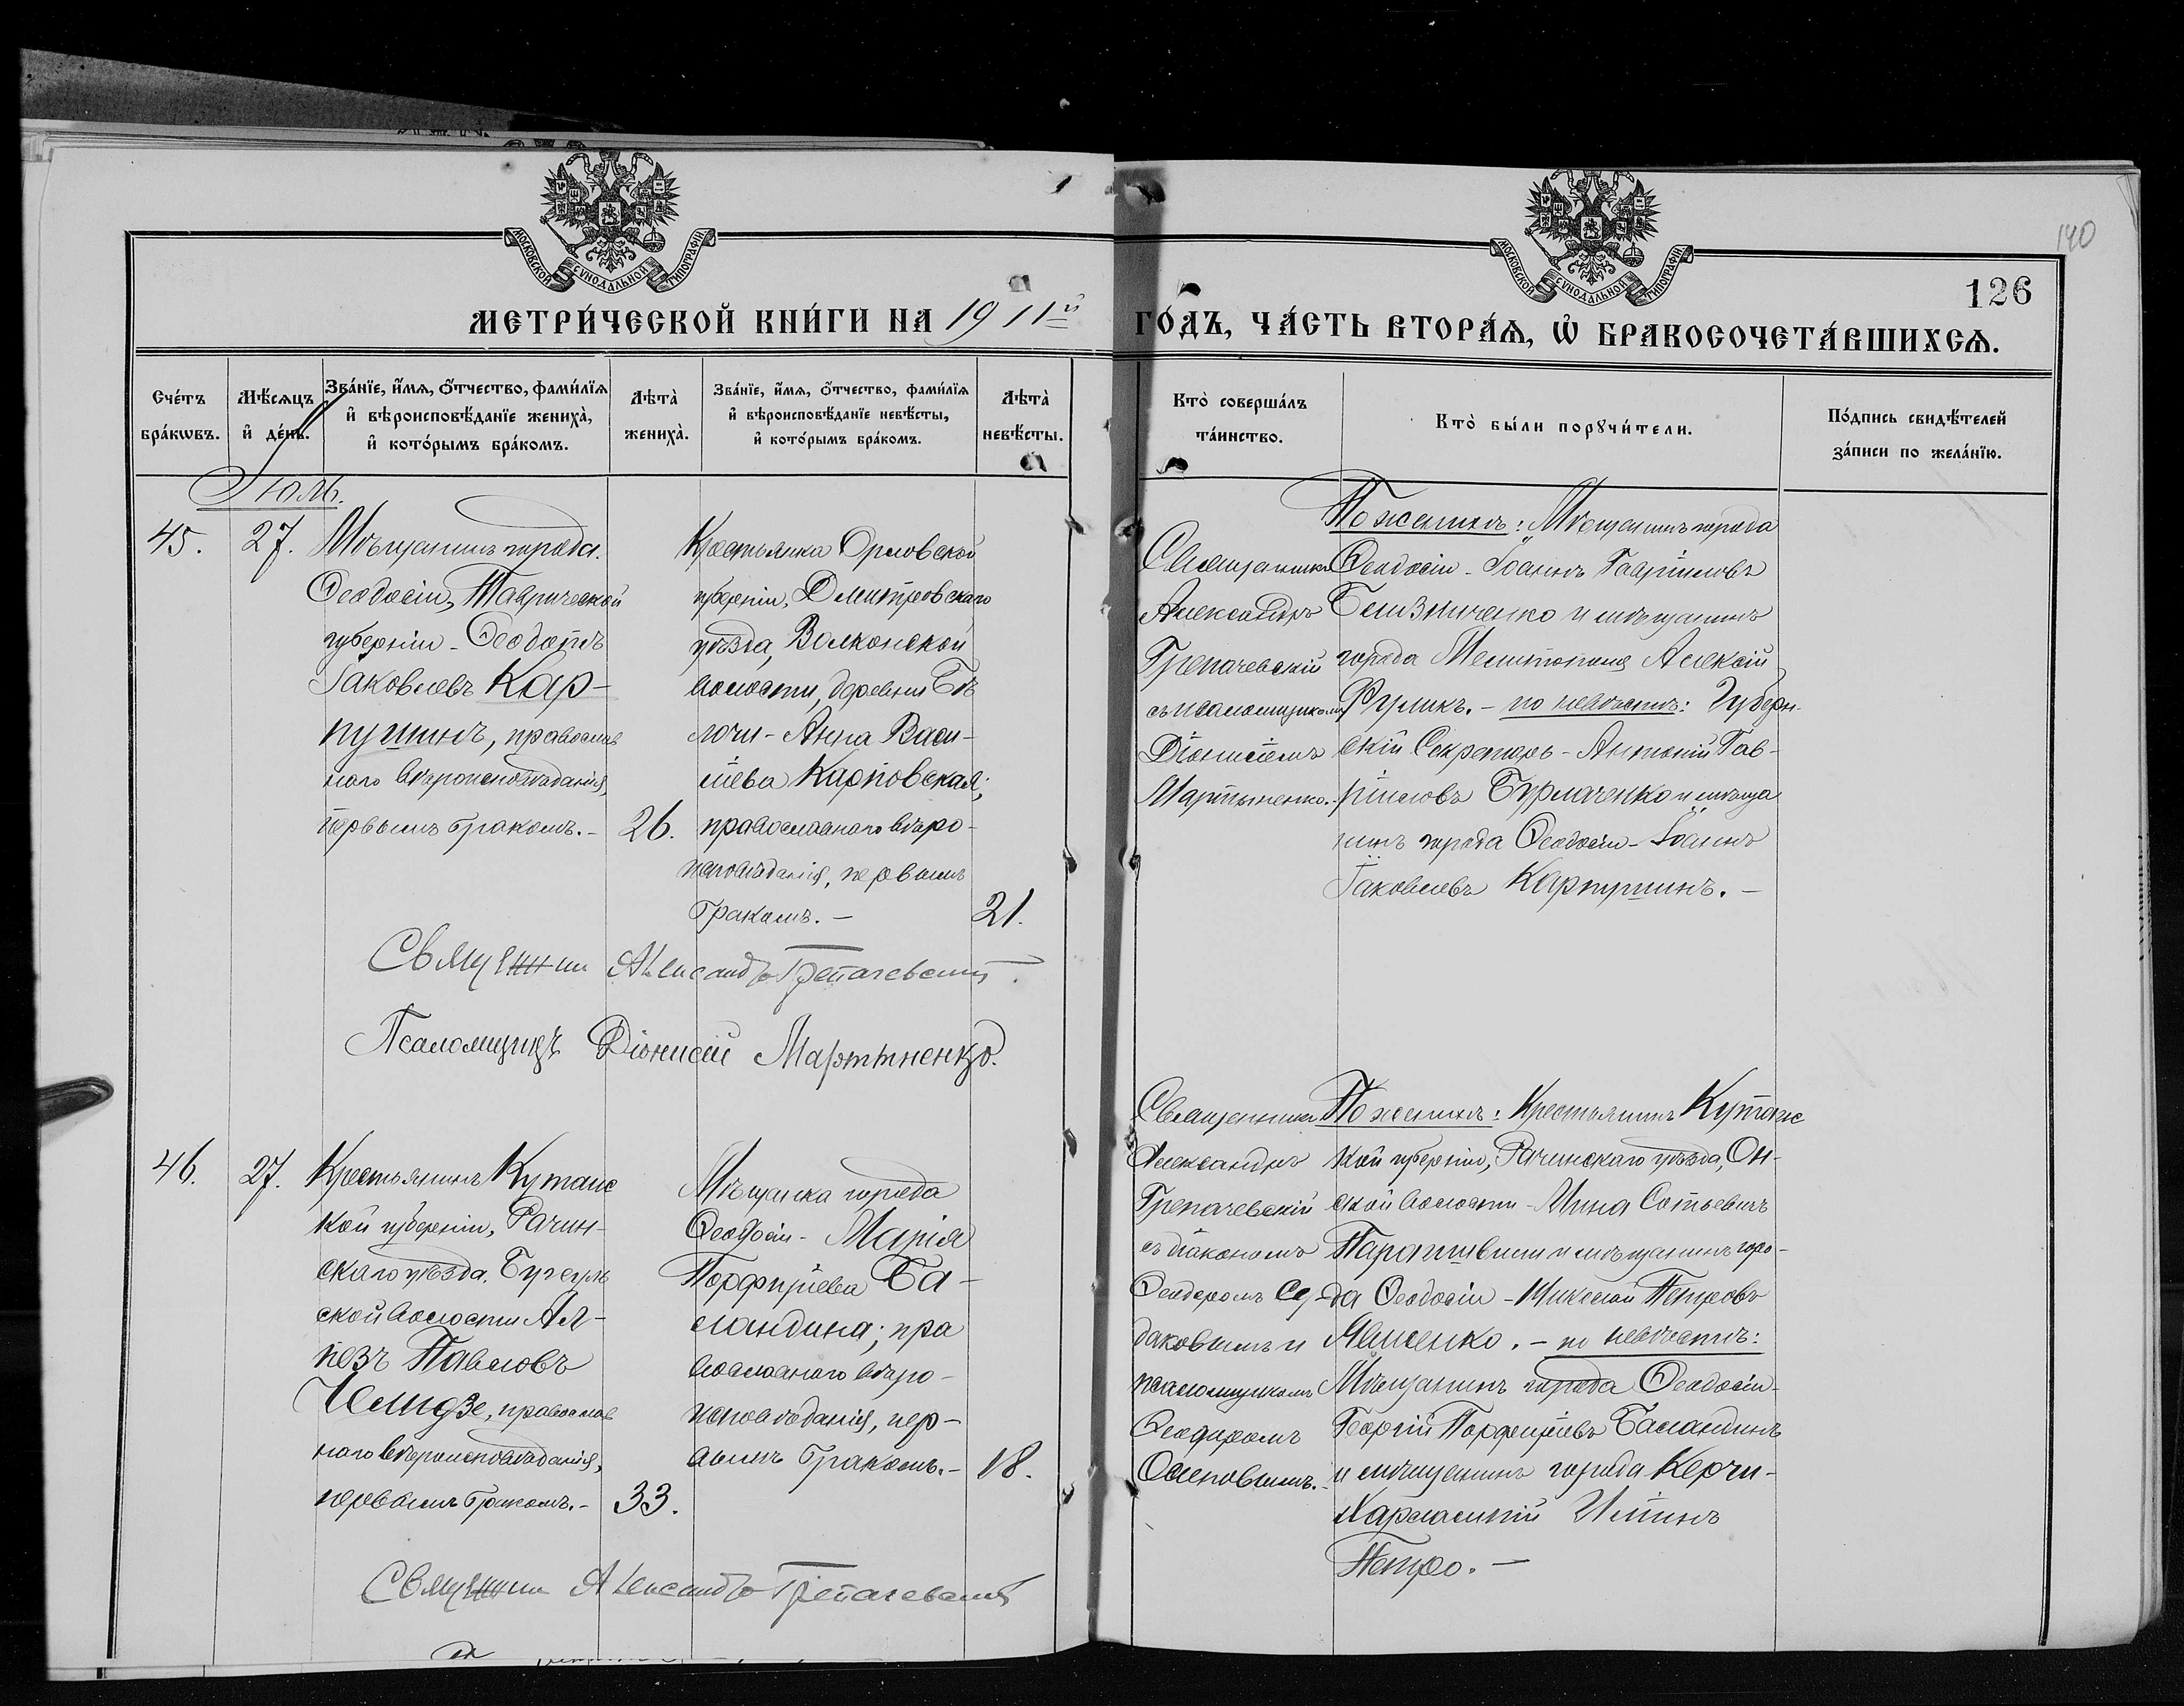 140
126
МОСКОВСКОЙ СѴНОДАЛЬНОЙ ТИПОГРАФІИ
МОСКОВСКОЙ СѴНОДАЛЬНОЙ ТИПОГРАФІИ
МЕТРИ́ЧЕСКОЙ КНИ́ГИ НА 1911й
ГО́ДЪ, ЧА́СТЬ ВТОРА́Ѧ, Ѽ БРАКОСОЧЕТА́ВШИХСѦ.
Сче́тъ
бра́кѡвъ.
Мѣ́сѧцъ
и҆ де́нь.
Зва́нїе, и҆́мѧ, ѻ҆́тчество, фами́лїѧ
и҆ вѣроисповѣ́данїе жениха̀,
и҆ кото́рымъ бра́комъ.
Лѣта̀
жениха̀.
Зва́нїе, и҆́мѧ, ѻ҆́тчество, фами́лїѧ
и҆ вѣроисповѣ́данїе невѣ́сты,
и҆ кото́рымъ бра́комъ.
Лѣта̀
невѣ́сты.
Кто̀ соверша́лъ
та́инство.
Кто̀ бы́ли порꙋчи́тели.
По́дпись свидѣ́телей
за́писи по жела́нїю.
Іюль.
45.
27.
Мѣщанинъ города
Ѳеодосіи, Таврической
губерніи – Ѳеодотъ
Іаковлевъ Кар-
пушинъ, православ
наго вѣроисповѣданія,
первымъ бракомъ. –
26.
Крестьянка Орловской
губерніи, Дмитровскаго
уѣзда, Волконской
волости, деревни Бѣ
лочи – Анна Васи-
ліева Карповская;
православнаго вѣро-
исповѣданія, первымъ
бракомъ. –
21.
Священникъ
Александръ
Трепачевскій
съ псаломщикомъ
Діонисіемъ
Мартыненко.
По женихѣ: Мѣщанинъ города
Ѳеодосіи – Іоаннъ Гавріиловъ
Безниченко и мѣщанинъ
города Мелитополя Алексій
Фуликъ. – по невѣстѣ: Губерн-
скій Секретарь – Антоній Гав-
ріиловъ Бурлаченко и мѣща
нинъ города Ѳеодосіи – Іоаннъ
Іаковлевъ Карпушинъ. –
Священник Александръ Трепачевский
Псаломщикъ Діонисій Мартыненко.
46.
27.
Крестьянинъ Кутаис
кой губерніи, Рачин-
скаго уѣзда, Бугеуль
ской волости Ал-
пезъ Павловъ
Челидзе, православ
наго вѣроисповѣданія,
первымъ бракомъ. –
33.
Мѣщанка города
Ѳеодосіи – Марія
Порфиріева Ба-
ландина; пра
вославнаго вѣро-
исповѣданія, пер-
вымъ бракомъ. –
18.
Священникъ
Александръ
Трепачевскій
съ діакономъ
Ѳеодоромъ Су-
даковымъ и
псаломщикомъ
Ѳеодоромъ
Осиповымъ.
По женихѣ: Крестьянинъ Кутаис
кой губерніи, Рачинскаго уѣзда, Он-
ской волости – Мина Сотьевичъ
Парапшвили и мѣщанинъ горо-
да Ѳеодосіи – Николай Петровъ
Яценко. – по невѣстѣ:
Мѣщанинъ города Ѳеодосіи –
Георгій Порфиріевъ Баландинъ
и мѣщанинъ города Керчи –
Харлампій Иліинъ
Петро. –
Священник Александръ Трепачевский